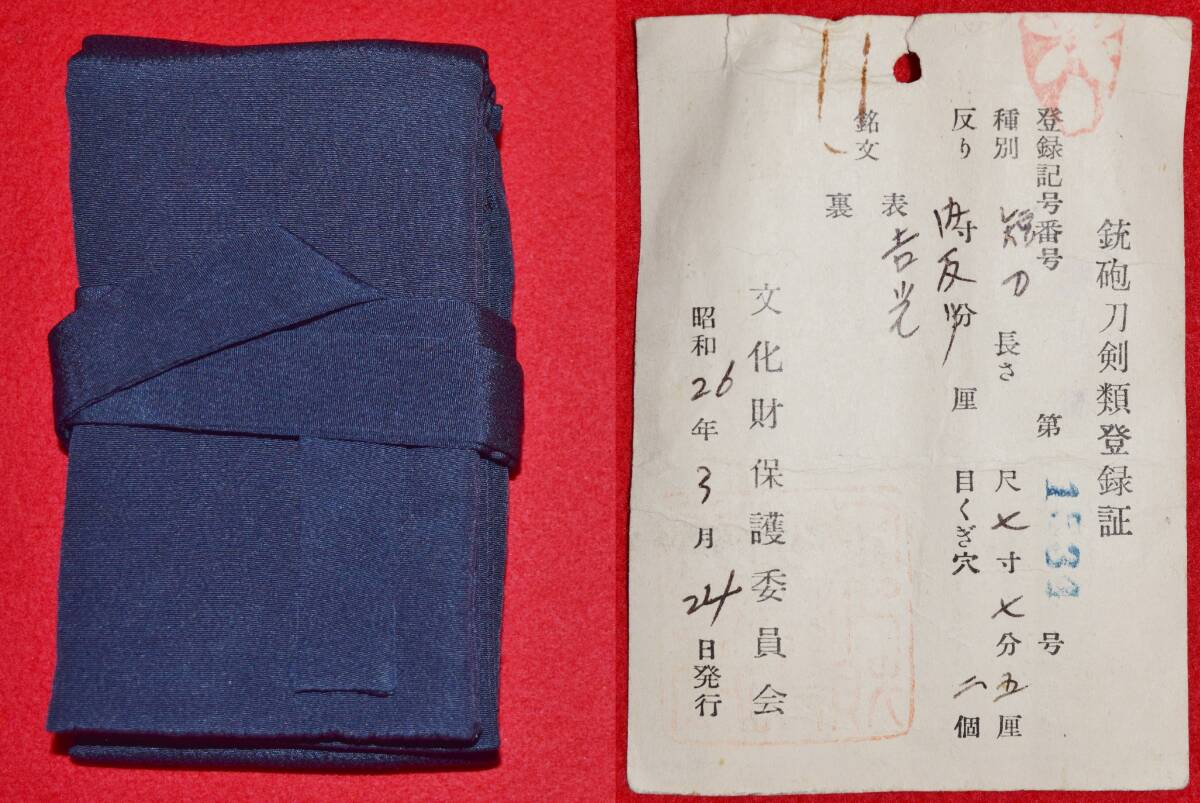 銃砲刀剣類登録証
登録記号番号 第 1534 号
種別 短刀 長さ 尺 七 寸 七 分 五 厘
反り 内寸反分 厘 目くぎ穴 二 個
銘文
表 吉光
裏
文化財保護委員会
昭和 26 年 3 月 24 日発行